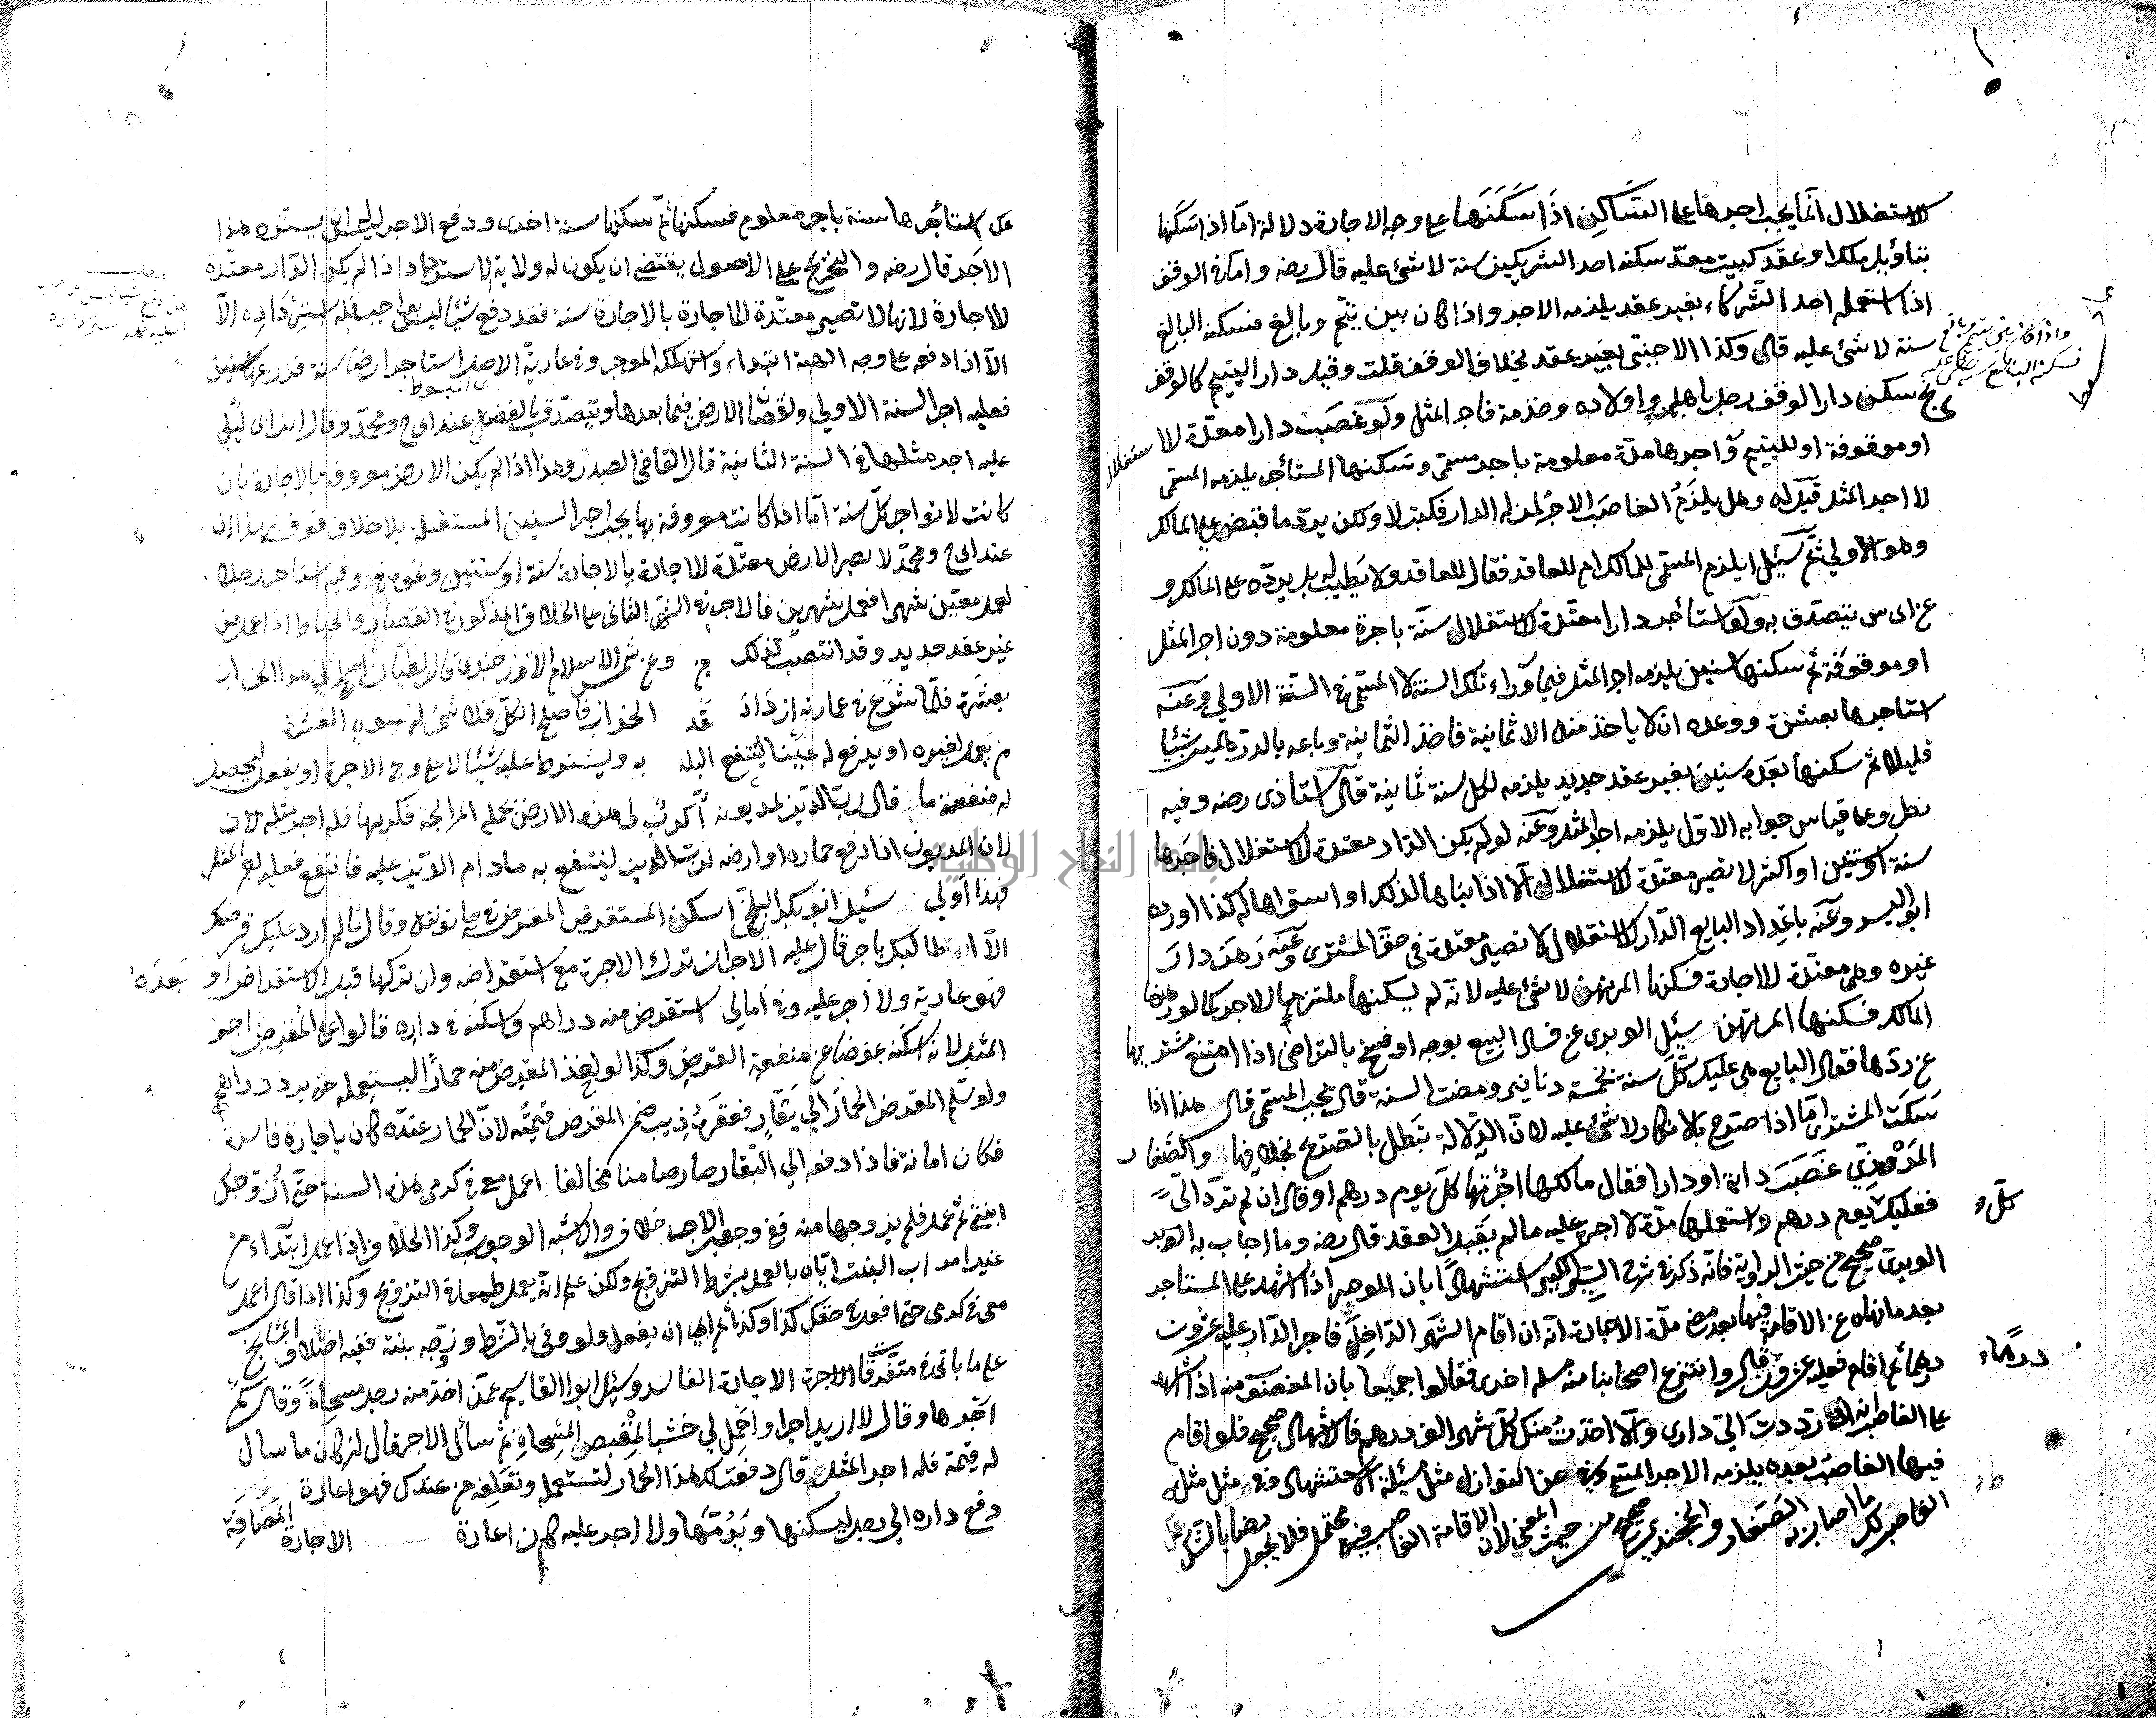 الاستغلال انما يجب اجرها على السّاكن اذا سكنها على وجه الاجارة دلالة امّا اذا سكنها
بتأويل ملك او عقد كبيت معدّ سكنه احد الشريكين سنة لا شئ عليه قال رضه واما في الوقف
اذا استعمله احد الشركاء بغير عقد يلزمه الاجر واذا كان بين يتيم وبالغ فسكنه البالغ
سنة لا شئ عليه قال وكذا الاجنبى بغير عقد بخلاف الوقف قلت وقيل دار اليتيم كالوقف
سكن دار الوقف رجل باهله واولاده وخدمه فاجر المثل ولو غصب دارا معدّة للاستغلال
او موقوفة او لليتيم وآجرها مدّة معلومة باجر مسمّى وسكنها المستأجر يلزمه المسمّى
لا اجر المثل قيل له وهل يلزم الغاصب الاجر لمن له الدار فكتب لا ولكن يردّ ما قبض على المالك
وهو الاولى ثم سئل ايلزم المسمّى للمالك ام للعاقد فقال للعاقد ولا يطيب له بل يردّه على المالك و
عن ابى س يتصدّق به ولو استأجر دارا معدّة للاستغلال سنة باجرة معلومة دون اجر المثل
او موقوفة ثم سكنها سنين يلزمه اجر المثل فيما وراء تلك السنة لا المسمّى في السّنة الاولى وعنه
استاجرها بعشرة ووعده ان لا ياخذ منه الا ثمانية فاخذ الثمانية وباعه بالدرهمين شيئا
قليلا ثم سكنها بعده سنين بغير عقد جديد يلزمه لكل سنة ثمانية قال استاذى رضه وفيه
نظر وعلى قياس جوابه الاول يلزمه اجر المثل وعنه لو لم يكن الدار معدة للاستغلال فآجرها
سنة او سنتين او اكثر لا تصير معدّة للاستغلال الّا اذا بناها لذلك او اشتراها له كذا اورده
ابو اليسر وعنه باعداد البايع الدّار للاستغلال لا تصير معدّة في حق المشترى وعنه رهن دار
غيره وهى معدّة للاجارة فسكنها المرتهن لا شئ عليه لانه لم يسكنها ملتزما للاجر كما لو رهنها
المالك فسكنها المرتهن سئل الوبرى عن فساد البيع بوجه او فسخ بالتراضى اذا امتنع مشتريها
عن ردّها فقال البايع هى عليك كلّ سنة بخمسة دنانير ومضت السنة قال يجب المسمّى قال هذا اذا
سكت المشترى امّا اذا صرّح بالانكار لا شئ عليه لانّ الدّلالة تبطل بالصّريح بخلافها والصّفار
المرْوزى غصب دابة او دارا فقال مالكها اجّرتها كلّ يوم درهم او قال ان لم تردّ الىّ
فعليك كلّ يوم درهم واستعملها مدّة لا اجر عليه ما لم يقبل العقد قال رضه وما اجاب به الوبر
الوبرى صحيح من حيث الرواية فانه ذكر في شرح السير الكبير استشهادًا بان الموجر اذا اشهد على المستاجر
بعد ما نهاه عن الاقامة فيها بعد مضى مدّة الاجارة انه ان اقام الشهر الدّاخل فاجر الدّار عليه عشرون
درهما ثم اقام فعليه عشرون قال وانتزع اصحابنا منه مسئلة اخرى فقالوا جميعا بان المغصوب منه اذا اشهد
على الغاصب انه ان رددت الىّ دارى والّا اخذت منك كلّ شهر الف درهم فالاشهاد صحيح فلو اقام
فيها الغاصب بعده يلزمه الاجر المسمّى وفي عن النوازل مثل مسئلة الاستشهاد وفي مثل مثل
الغاصب لكن ما اصار به الصّفار والخجندى صحيح من حيث المعنى لان الاقامة الغاصب فيه محتمل فلا يجعل رضا بالشك
واذا كان بين يتيم وبالغ
فسكنه البالغ سنة لا شئ عليه
كلّ
درهما
على استأجرها سنة باجر معلوم فسكنها ثم سكنها سنة اخرى ودفع الاجر ليس له ان يسترد هذا
الاجر قال رضه والتخريج على الاصول يقتضى ان يكون له ولاية الاسترداد اذا لم يكن الدّار معدّة
للاجارة لانها لا تصير معدّة للاجارة بالاجارة سنة فقد دفع شيئا ليس بواجب فله استرداده الّا
الّا اذا دفعه على وجه الهبة ابتداء واستهلكه الموجر وفي عارية الاصل استاجر ارضا سنة فزرعها سنين
فعليه اجر السنة الاولى ونقصان الارض فيما بعدها ويتصدّق بالفضل عند ابى ح ومحمّد وقال ابن ابى ليلى
عليه اجر مثلها في السنة الثانية قال القاضى الصدر وهذا اذا لم يكن الارض معروفة بالاجارة بان
كانت لا تواجر كلّ سنة امّا اذا كانت معروفة بها يجب اجر السنين المستقبلة بلا خلاف فعرف بهذا ان
عند ابى ح ومحمّد لا يصير الارض معدّة للاجارة بالاجارة سنة او سنتين ونحوه في وفيه استاجر رجلا
لعمل معيّن شهرا فعمل شهرين فالاجر في الشهر الثانى على الخلاف المذكور في القصار والخياط اذا عمل من
غير عقد جديد وقد انتصب لذلك وعن شمس الاسلام الاوزجندى قال للطيّان اصلح لى هذا الخراب
بعشرة فلمّا شرع في عمارته ازداد الخراب فاصلح الكلّ فلا شئ له سوى العشرة
يعمل لغيره او يدفع له عينا لينتفع به ويشترط عليه شيئا لا على وجه الاجرة او يفعل ليحصل
له منفعة ما قال ربّ الدّين لمديونه اكرب لى هذه الارض فكربها فله اجر مثله لان
لان المديون اذا دفع حماره او ارضه لربّ الدين لينتفع به مادام الدّين عليه فانتفع فعليه اجر المثل
فهذا اولى سئل ابو بكر البلخى اسكن المستقرض المقرض في حانوته وقال ما لم اردّ عليك قرضك
لا اطالبك باجر قال عليه الاجر ان ترك الاجرة مع استقراضه وان تركها قبل الاستقراض او بعده
فهو عارية ولا اجر عليه وفي امالى استقرض منه دراهم واسكنه في داره قالوا على المقرض اجر
المثل لانه اسكنه عوضا عن منفعة القرض وكذا لو اخذ المقرض منه حمارًا ليستعمله حتى يردّ دراهمه
ولو سلّم المقرض الحمار الى بقّار فعقره ذئب ضمن المقرض قيمته لانّ الحمار عنده كان باجارة فاسدة
فكان امانة فاذا دفعه الى البقار صار ضامنا مخالفا اعمل معى في كرمى هذه السنة حتى ازوّجك
ابنتى ثم عمل فلم يزوجها منه ففى وجوب الاجر خلاف والاشبه الوجوب وكذا الخلاف اذا عمل ابتداء من
غير امر اب البنت ايّاه بالعمل بشرط التزويج ولكن علم انه يعمل طمعا في التزويج وكذا اذا قال اعمل
معى في كرمى حتى افعل في حقك كذا وكذا ثم ابى ان يفعل ولو وفى بالشّرط وزوّجه بنته ففيه اختلاف المشايخ
على ما ياتى في متفرّقات الاجرة الاجارة الفاسدة وسئل ابو القاسم عمّن اخذ من رجل مسحاةً وقال
آجرها وقال لا اريد اجرا واجعل لى خشبا لمقبض المسحاة ثم سأل الاجر قال ان كان ما سال
له قيمة فله اجر المثل قال دفعت لك هذا الحمار لتستعمله وتعلفه من عندك فهو اعارة
دفع داره الى رجل ليسكنها ويرمّها ولا اجر عليه فهى اعارة الاجارة المضافة